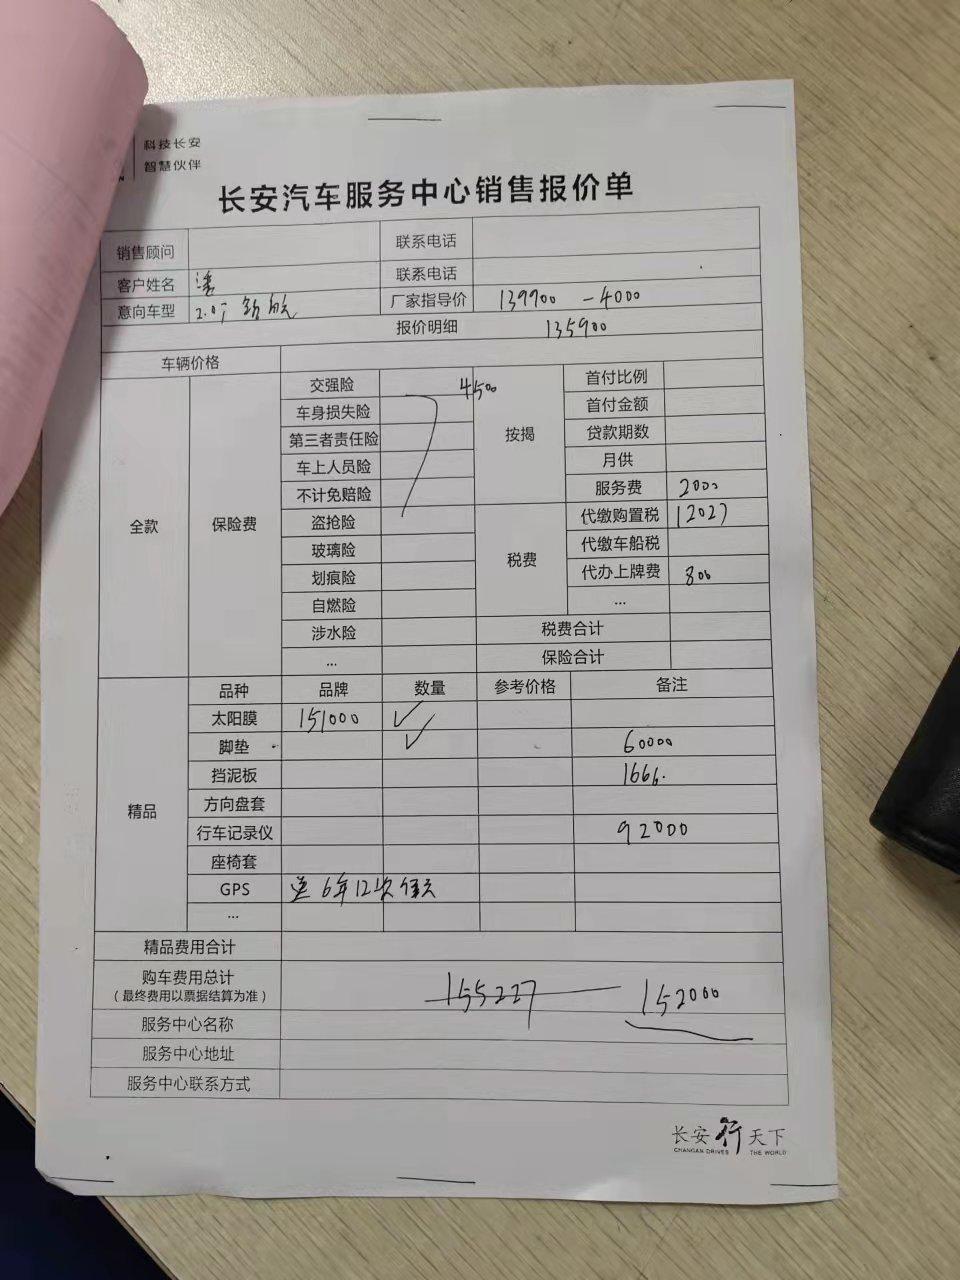 科技长安
智慧伙伴
长安汽车服务中心销售报价单
销售顾问 联系电话
客户姓名 联系电话
意向车型 2.0T 厂家指导价 139900 -4000
报价明细 135900
车辆价格
全款 保险费 交强险 4500 按揭 首付比例
车身损失险 首付金额
第三者责任险 贷款期数
车上人员险 月供
不计免赔险 服务费 2000
盗抢险 税费 代缴购置税 12027
玻璃险 代缴车船税
划痕险 代办上牌费 800
自燃险 ...
涉水险 税费合计
... 保险合计
精品 品种 品牌 数量 参考价格 备注
太阳膜 151000 ✓
脚垫 ✓ 60000
挡泥板 1666.
方向盘套
行车记录仪 92000
座椅套
GPS 送 6年12次保养
...
精品费用合计
购车费用总计 155227 152000
(最终费用以票据结算为准)
服务中心名称
服务中心地址
服务中心联系方式
长安行天下
CHANGAN DRIVES THE WORLD